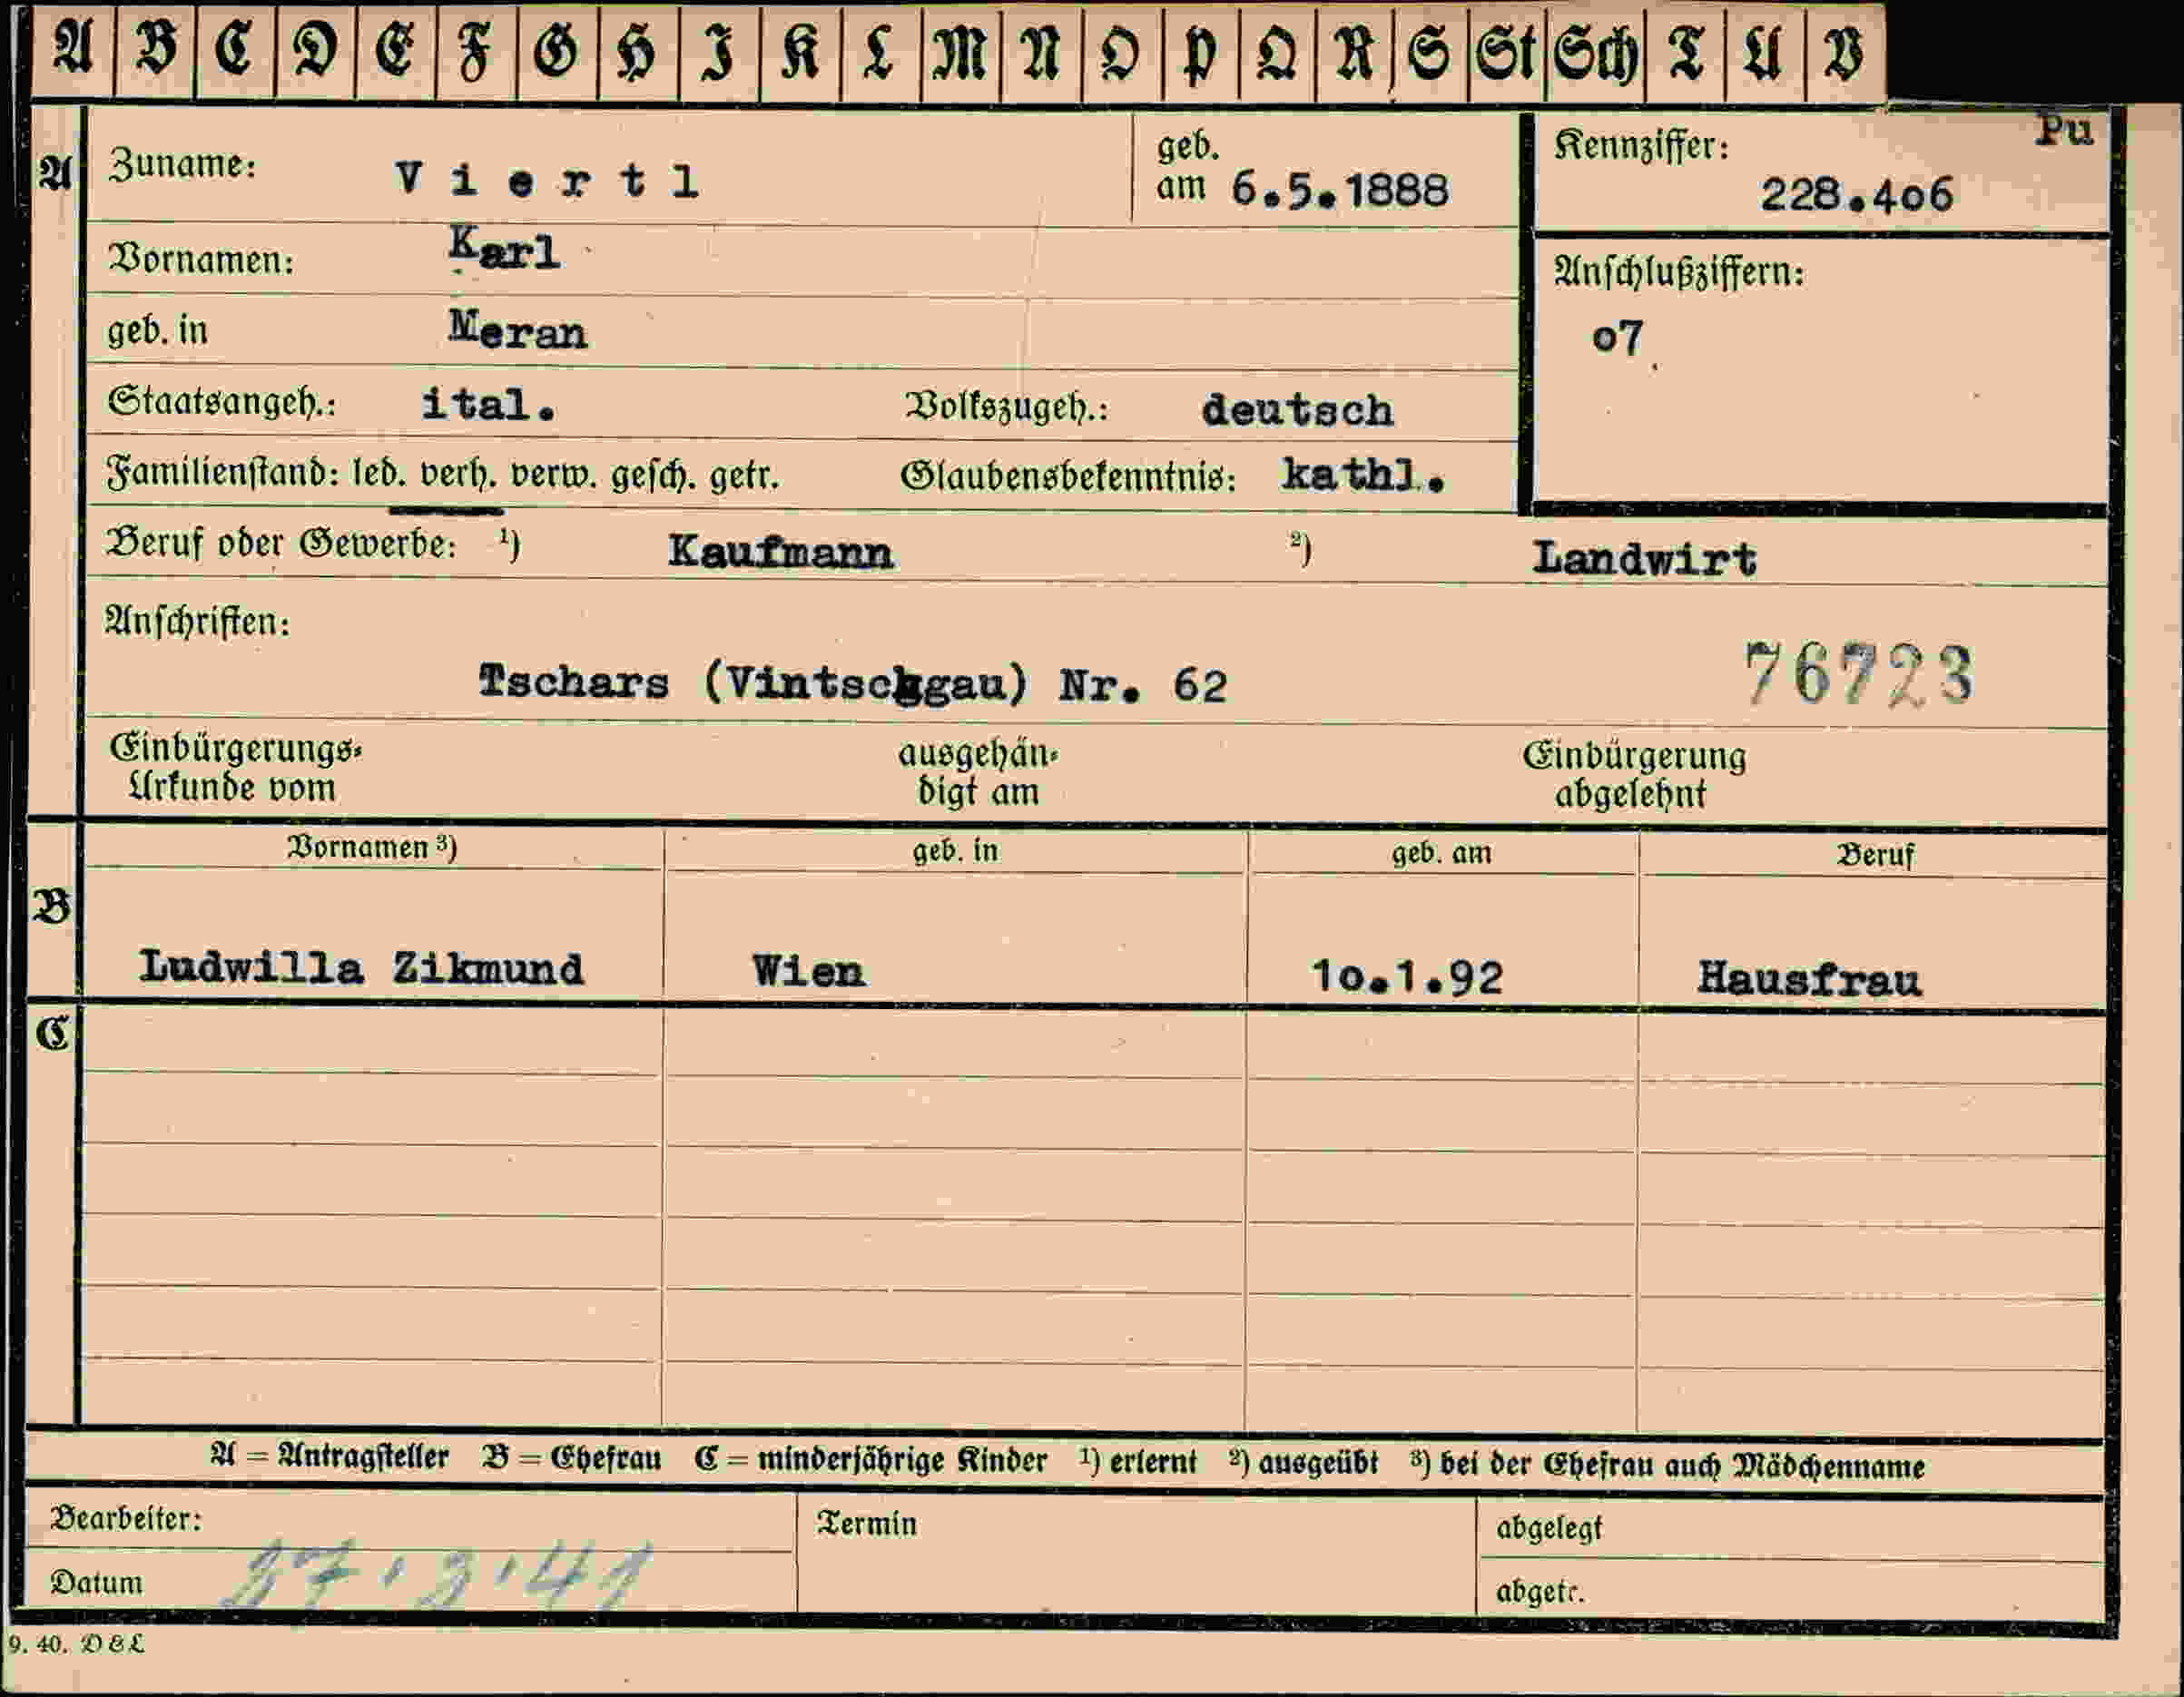 A B C D E F G H I K L M N O P Q R S St Sch T U V
Pu
A Zuname: Viertl geb. am 6.5.1888 Kennziffer: 228.4o6
Vornamen: Karl Anschlußziffern:
geb. in Meran o7
Staatsangeh.: ital. Volkszugeh.: deutsch
Familienstand: led. verh. verw. gesch. getr. Glaubensbekenntnis: kathl.
Beruf oder Gewerbe: ¹) Kaufmann ²) Landwirt
Anschriften:
Tschars (Vintschgau) Nr. 62 76723
Einbürgerungs- ausgehän- Einbürgerung
Urkunde vom digt am abgelehnt
Vornamen ³) geb. in geb. am Beruf
B
Ludwilla Zikmund Wien 1o.1.92 Hausfrau
C
A = Antragsteller B = Ehefrau C = minderjährige Kinder ¹) erlernt ²) ausgeübt ³) bei der Ehefrau auch Mädchenname
Bearbeiter: Termin abgelegt
Datum abgetr.
9. 40. D & L